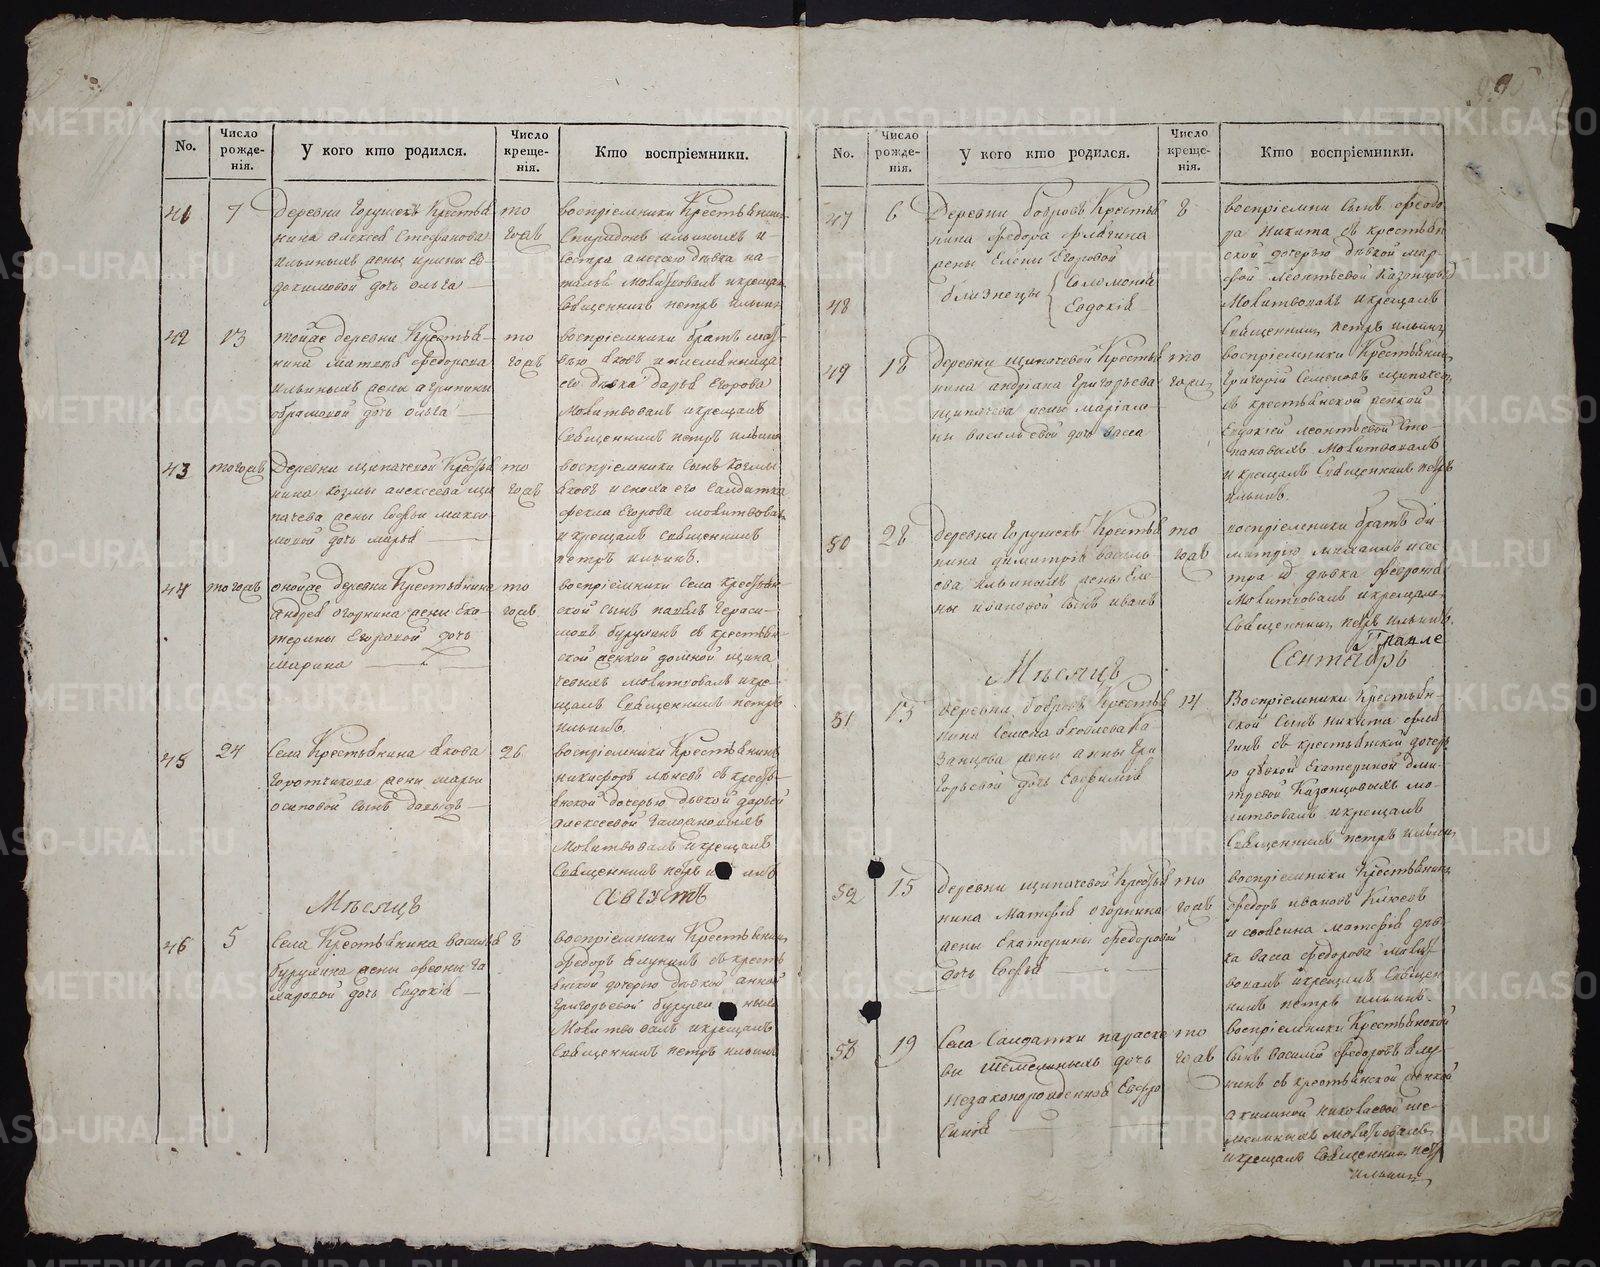 No.
Число рожденія.
У кого кто родился.
Число крещенія.
Кто воспріемники.
41
7
деревни Горушекъ Крестья
нина алексея Стефанова
ильиныхъ жены ирины ев
докимовой дочь ольга
то
гожъ
воспріемники Крестьянинъ
Спиридонъ ильиныхъ и
сестра алексею девка на
талья Молитвовалъ и крещалъ
Священникъ петръ ильинъ
42
13
тойже деревни Крестья
нина Матвея федорова
ильиныхъ жены агрипины
абрамовой дочь ольга
то
гожъ
воспріемники братъ мат
вею яковъ и племянница
его девка дарья Егорова
Молитвовалъ и крещалъ
Священникъ петръ ильинъ
43
тогожъ
деревни щипачевой Крестья
нина козмы алексеева щи
пачева жены Софьи макси
мовой дочь марья
то
гожъ
воспріемники сынъ козмы
яковъ и сноха его Салдатка
фекла Егорова молитвовалъ
и крещалъ священникъ
петръ ильинъ.
44
тогожъ
онойже деревни Крестьянина
андрея огорнина жены Ека
терины Егоровой дочь
марина
то
гожъ
воспріемники села крестьян
ской сынъ павелъ Гераси
мовъ бурухинъ съ крестьян
ской женкой домной щипа
чевыхъ молитвовалъ и кре
щалъ Священникъ петръ
ильинъ.
45
24
Села Крестьянина якова
жены марьи
осиповой сынъ давыдъ
26
воспріемники Крестьянинъ
никифоръ съ кресть
янской дочерью девкой дарьей
алексеевой
Молитвовалъ и крещалъ
Священникъ петръ ильинъ
Месяцъ
Августъ
46
5
Села Крестьянина василья
бурухина жены
дочь Евдокія
8
воспріемники Крестьянинъ
федоръ ялунинъ съ кресть
янской дочерью девкой анной
григорьевой бурухиныхъ
Молитвовалъ и крещалъ
Священникъ петръ ильинъ
No.
Число рожденія.
У кого кто родился.
Число крещенія.
Кто воспріемники.
47
6
Деревни бобровъ Крестья
нина федора флягина
жены Елены Егоровой
48
близнецы
Соломонія
Евдокія
8
воспріемни сынъ федо
ра никита съ крестьян
ской дочерью девкой мар
фой леонтьевой Казанцовыхъ
Молитвовалъ и крещалъ
Священникъ петръ ильинъ
49
18
деревни щипачевой Крестья
нина андріана Григорьева
щипачева жены маріам
ны васильевой дочь васса
то
гожъ
воспріемники Крестьянинъ
Григорій Семеновъ щипачевъ
съ крестьянской женкой
Евдокіей леонтьевой
Молитвовалъ
и крещалъ Священникъ петръ
ильинъ.
50
28
деревни Горушекъ Крестья
нина димитрія василь
ева ильиныхъ жены Еле
ны ивановой сынъ иванъ
то
гожъ
воспріемники братъ ди
митрію михаилъ и сес
тра девка феврон
Молитвовалъ и крещалъ
Священникъ петръ ильинъ.
Месяцъ
Сентябрь
51
13
деревни бобровъ Крестья
нина Семена яковлева Ка
занцова жены анны Гри
горьевой дочь Евфимія
14
Воспріемники Крестьян
ской Сынъ никита фля
гинъ съ крестьянской дочерь
ю девкой Екатериной дми
тревой Казанцовыхъ мо
литвовалъ и крещалъ
Священникъ петръ ильинъ
52
15
деревни щипачевой Крестья
нина Матфея огорнина
жены Екатерины федоровой
дочь Софья
то
гожъ
воспріемники Крестьянинъ
федоръ ивановъ Клюевъ
и матфея дев
ка васса федорова молит
вовалъ и крещалъ Священ
никъ петръ ильинъ.
53
19
Села Салдатки параске
вы шемелиныхъ дочь
незаконорожденная Евфро
синія
то
гожъ
воспріемники Крестьянской
сынъ василій федоровъ ялу
нинъ съ крестьянской женкой
акилиной николаевой ше
мелиныхъ молитвовалъ
и крещалъ Священникъ петръ
ильинъ